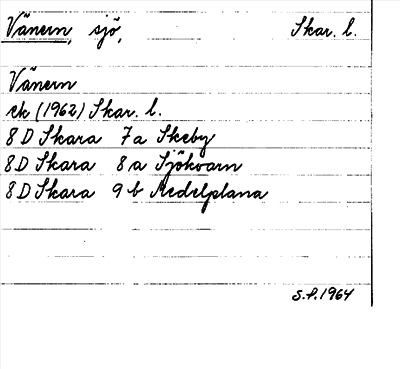 Vänern, sjö, Skar. l.
Vänern
ek (1962) Skar. l.
8 D Skara 7a Skeby
8D Skara 8a Sjökvarn
8D Skara 9b Medelplana
S.P. 1964